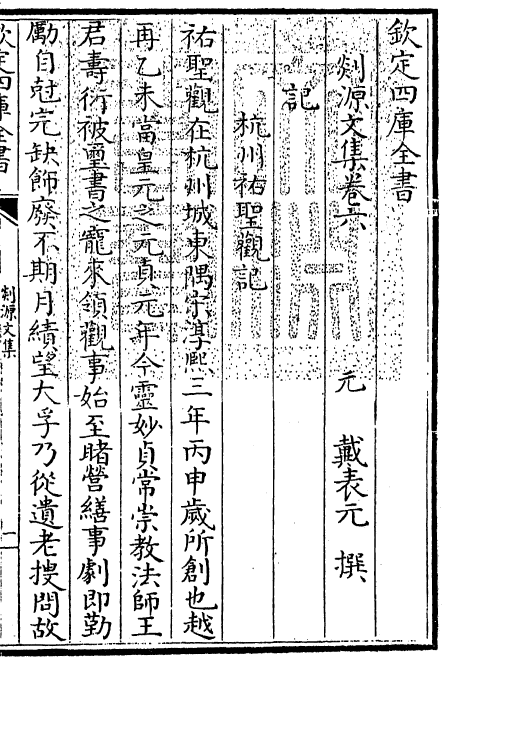 欽定四庫全書
剡源文集卷六
元 戴表元 撰
記
杭州祐聖觀記
祐聖觀在杭州城東隅宋淳熙三年丙申歲所創也越
再乙未當皇元之元貞元年今靈妙貞常崇教法師王
君壽衍被璽書之寵來領觀事始至睹營繕事劇即勤
勵自尅完缺飾廢不期月績望大孚乃從遺老搜問故
欽定四庫全書
剡源文集